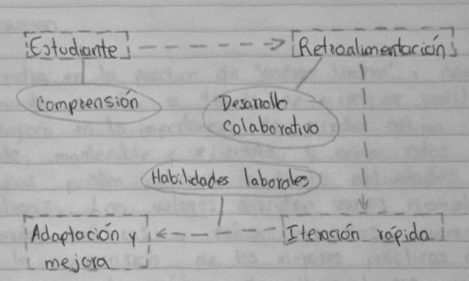 Estudiante
Retroalimentación
Comprensión
Desarrollo
colaborativo
Habilidades laborales
Adaptación y
mejora
Iteración rápida